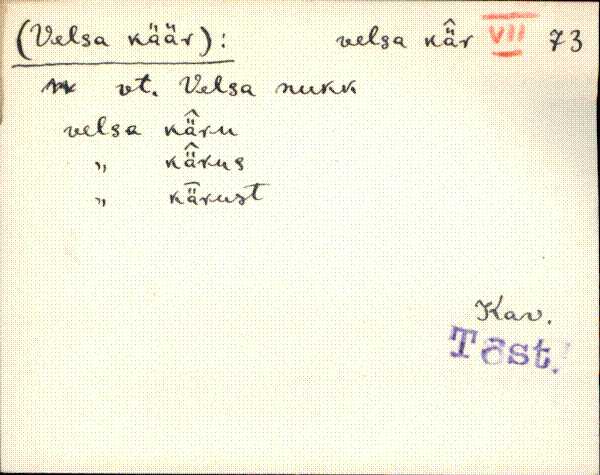 (Velsa käär): velsa kä̂r VII 73
vt. Velsa nukk
velsa kä̂ru
" kä̂rus
" kǟrust
Kav.
Tõst.